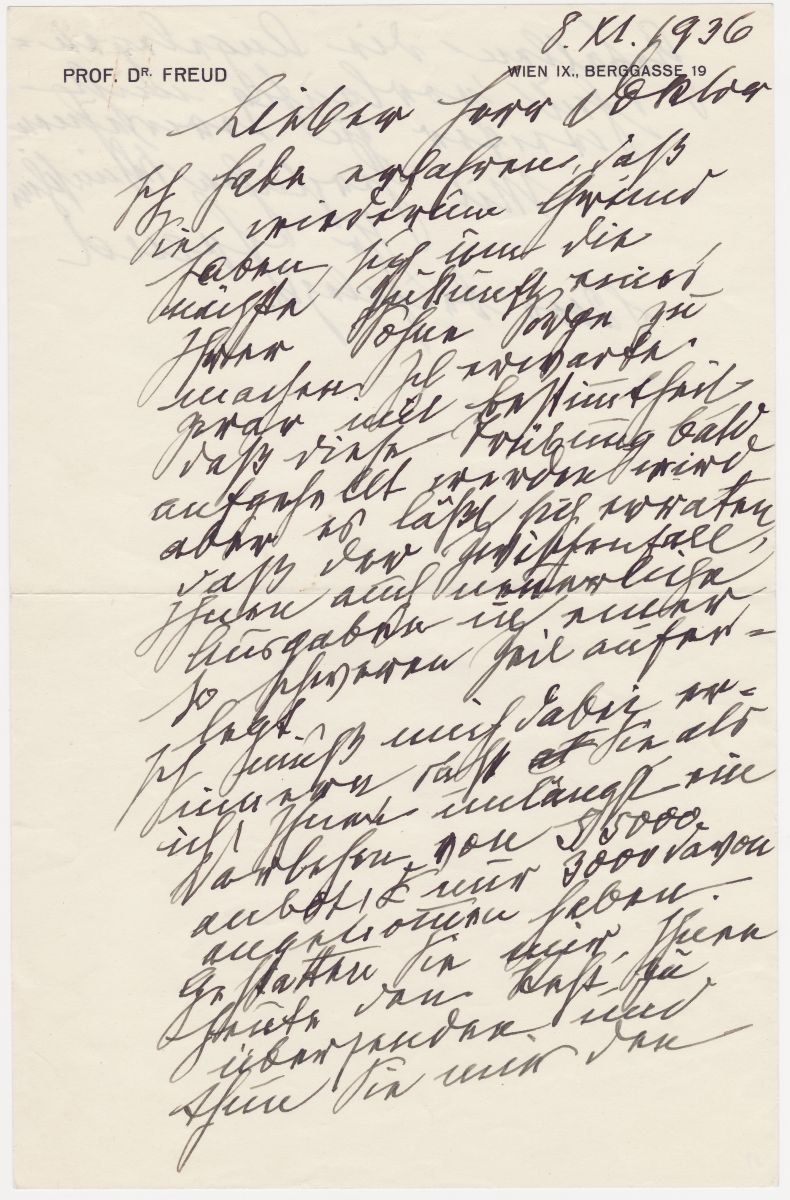 8. XI. 1936
PROF. DR. FREUD WIEN IX., BERGGASSE 19
Lieber Herr Doktor
Ich habe erfahren, daß
Sie wiederum Grund
haben, sich um die
nächste Zukunft eines
Ihrer Söhne Sorge zu
machen. Ich erwarte
zwar mit Bestimmtheit
daß diese Trübung bald
aufgehellt werden wird
aber es läßt sich erraten
daß der Zwischenfall,
Ihnen auch neuerliche
Ausgaben in einer
so schweren Zeit aufer-
legt.
Ich muß mich dabei er-
innern daß Sie als
ich Ihnen unlängst ein
Darlehen von S 5000
anbot, nur 3000 davon
angenommen haben.
Gestatten Sie mir, Ihnen
heute den Rest zu
übersenden und
thun Sie mir den